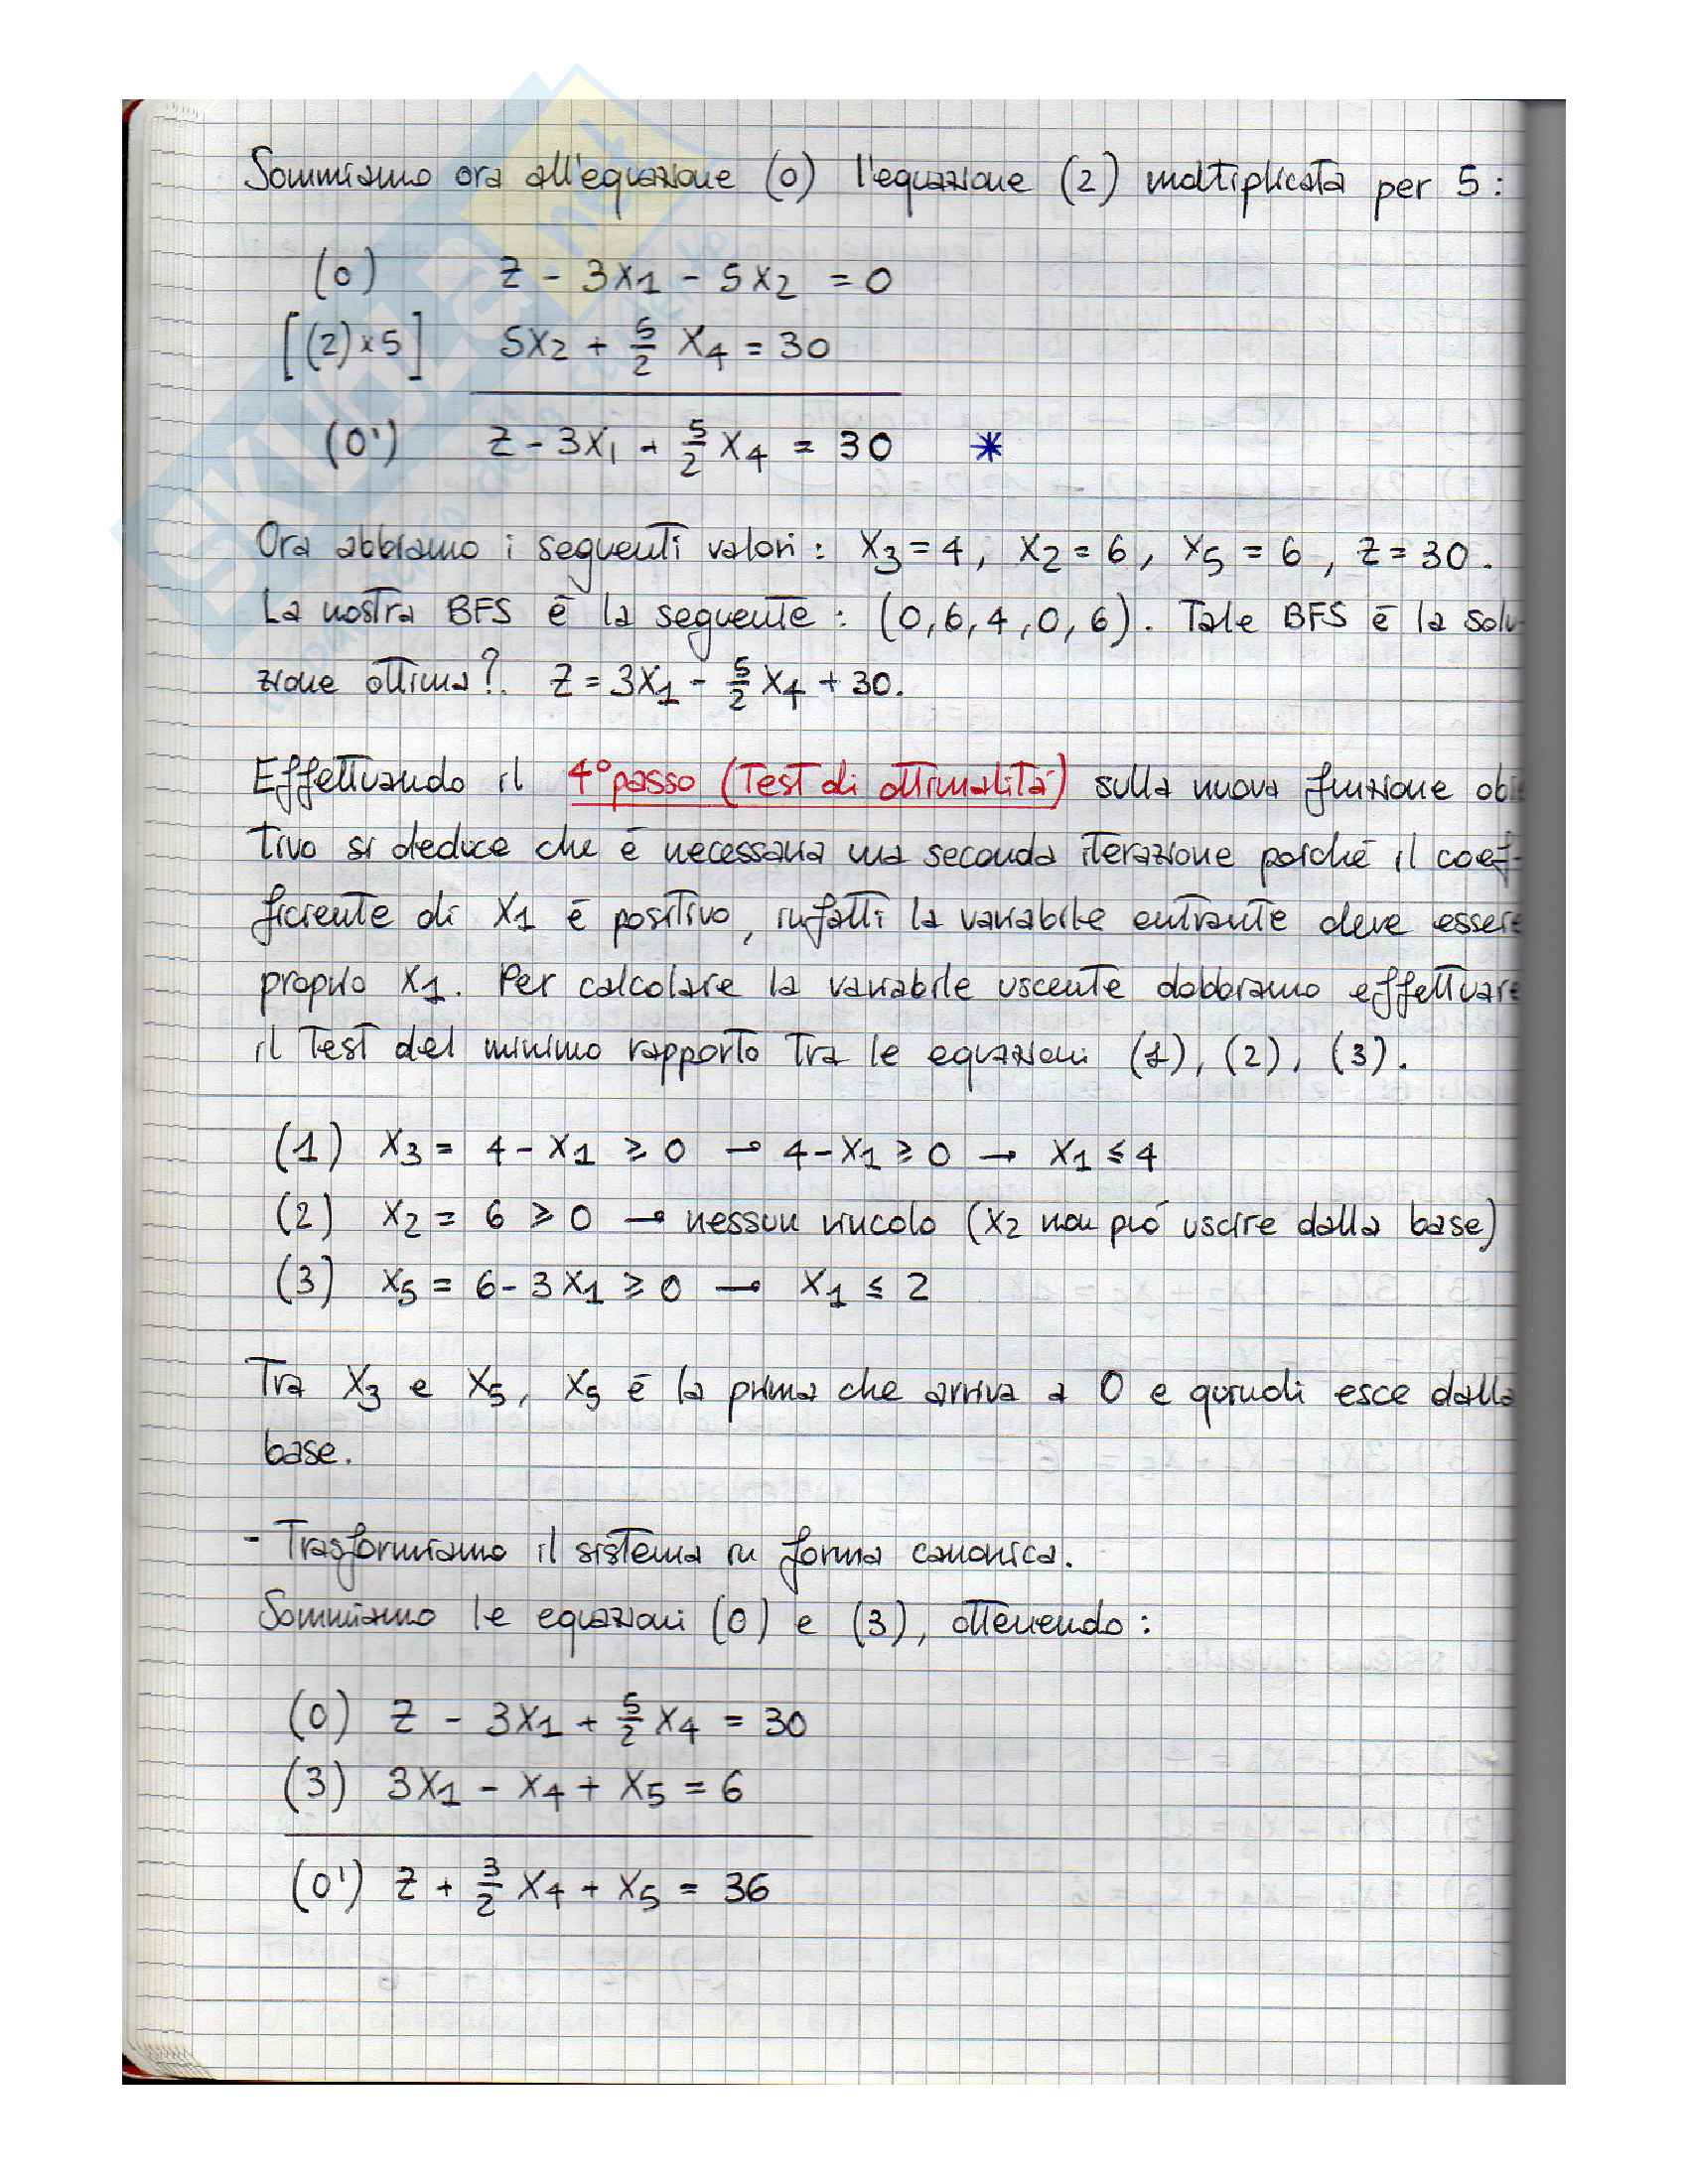 Sommiamo ora all'equazione (0) l'equazione (2) moltiplicata per 5:
(0) Z - 3X1 - 5X2 = 0
[(2)×5] 5X2 + 5/2 X4 = 30
(0') Z - 3X1 + 5/2 X4 = 30 *
Ora abbiamo i seguenti valori: X3 = 4, X2 = 6, X5 = 6, Z = 30.
La nostra BFS è la seguente: (0,6,4,0,6). Tale BFS è la solu
zione ottima? Z = 3X1 - 5/2 X4 + 30.
Effettuando il 4° passo (Test di ottimalità) sulla nuova funzione obi
tivo si deduce che è necessaria una seconda iterazione poiché il coef-
ficiente di X1 è positivo, infatti la variabile entrante deve essere
proprio X1. Per calcolare la variabile uscente dobbiamo effettuare
il Test del minimo rapporto tra le equazioni (1), (2), (3).
(1) X3 = 4 - X1 ≥ 0 → 4 - X1 ≥ 0 → X1 ≤ 4
(2) X2 = 6 ≥ 0 → nessun vincolo (X2 non può uscire dalla base)
(3) X5 = 6 - 3X1 ≥ 0 → X1 ≤ 2
Tra X3 e X5, X5 è la prima che arriva a 0 e quindi esce dalla
base.
- Trasformiamo il sistema in forma canonica.
Sommiamo le equazioni (0) e (3), ottenendo:
(0) Z - 3X1 + 5/2 X4 = 30
(3) 3X1 - X4 + X5 = 6
(0') Z + 3/2 X4 + X5 = 36